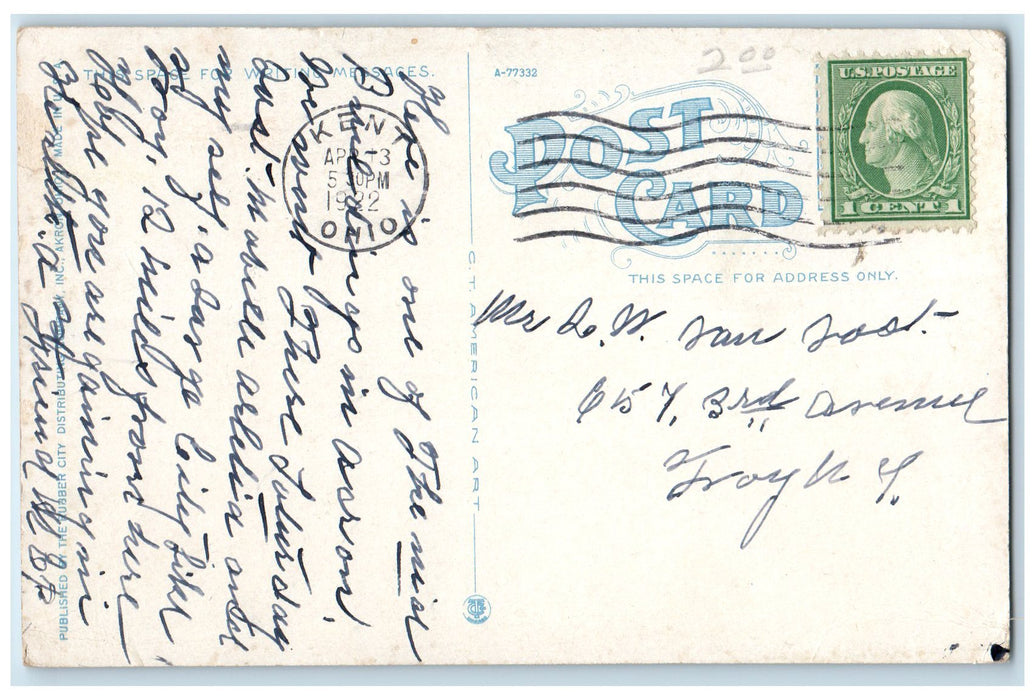 THIS SPACE FOR WRITING MESSAGES.
A-77332
2.00
POST CARD
U.S. POSTAGE
1 CENT 1
KENT
APR 13
5 PM
1922
OHIO
THIS SPACE FOR ADDRESS ONLY.
C.T. AMERICAN ART
PUBLISHED BY THE RUBBER CITY DISTRIBUTING INC., AKRON MADE IN U.S.A.
Mr. W. Van
657, 3rd Avenue
Troy N Y.
Here is one of the nice
Buildings in acron,
We went there Saturday
last. Mabell ardelia and
my self, a large City like
Troy, 12 miles from here
Hope you are gaining in
your friend W B